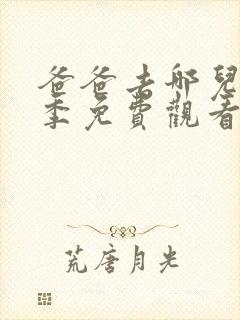 爸爸去哪兒
季免費觀看
荒唐月光